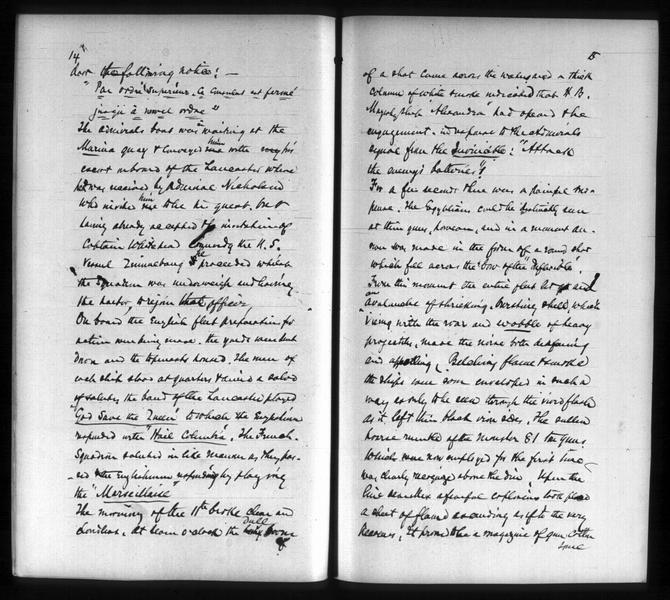 14
door the following notice: —
"Par ordre supérieure. Ce Consulat est fermé
jusqu' à novel ordre"
The admirals boat was waiting at the
Marina quay & conveyed him with
escort onboard of the Lancaster where
he was received by Admiral Nicholson
who invited him to be his guest, but
having already accepted invitation of
Captain Whitehead Commandg the U.S.
Vessel Quinnebaug he proceeded whilst
the squadron was underweigh and leaving
the harbor, to rejoin that officer
On board the English fleet preparation for
action were being made. The yards were sent
down and the topmasts housed. The men of
each ship stood at quarters & amid a salvo
of salutes, the band of the Lancaster played
"God Save the Queen" to which the English
responded with "Hail Columbia". The French
Squadron saluted in like manner as they pas-
-ed & the Englishmen responded by playing
the "Marseillaise"
The morning of the 11th broke clear and
cloudless. At seven o'clock the dull boom
of
15
of a shot came across the water and a thick
column of white smoke indicated that H. B.
Majesty's ship "Alexandra" had opened the
engagement. in response to the admirals
signal from the Invincible: "Attack
the enemy's batteries"!
For a few seconds there was a painful sus-
pense. The Egyptians could be distinctly seen
at their guns, however, and in a moment an-
swer was made in the form of a round shot
which fell across the bow of the "Inflexible".
From this moment the entire fleet let go
an avalanche of shrieking, bursting shell, which
vieing with the roar and wobble of heavy
projectiles, made the noise both deafening
and appalling. Belching flame & smoke
the ships were soon enveloped in such a
way as only to be seen through the vivid flash
as it left their black iron sides. The sullen
hoarse mutter of the monster 81 ton guns
which were now employed for the first time
was clearly recognized above the din. Upon the
line near Mex a fearful explosion took place
a sheet of flame ascending as if to the very
heavens, it proved to be a magazine of gun cotton